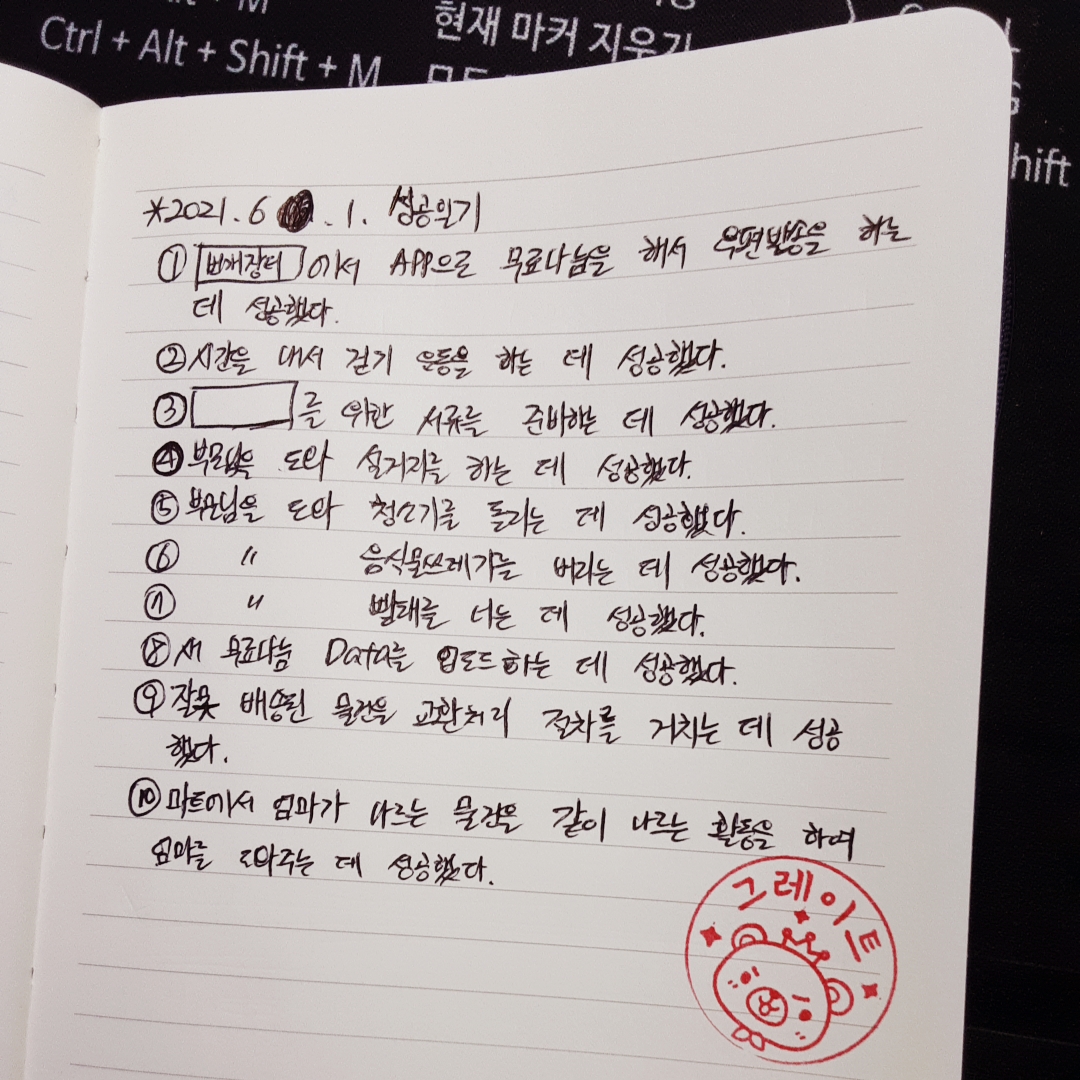 + M
Ctrl + Alt + Shift + M
현재 마커 지우기
hift
*2021. 6 . 1. 성공일기
① 번개장터에서 APP으로 무료나눔을 해서 우편발송을 하는
데 성공했다.
② 시간을 내서 걷기 운동을 하는 데 성공했다.
③ 를 위한 서류를 준비하는 데 성공했다.
④ 부모님을 도와 설거지를 하는 데 성공했다.
⑤ 부모님을 도와 청소기를 돌리는 데 성공했다.
⑥ 〃 음식물쓰레기를 버리는 데 성공했다.
⑦ 〃 빨래를 너는 데 성공했다.
⑧ 새 무료나눔 Data를 업로드하는 데 성공했다.
⑨ 잘못 배송된 물건을 교환처리 절차를 거치는 데 성공
했다.
⑩ 마트에서 엄마가 나르는 물건을 같이 나르는 활동을 하여
엄마를 도와주는 데 성공했다.
그레이트